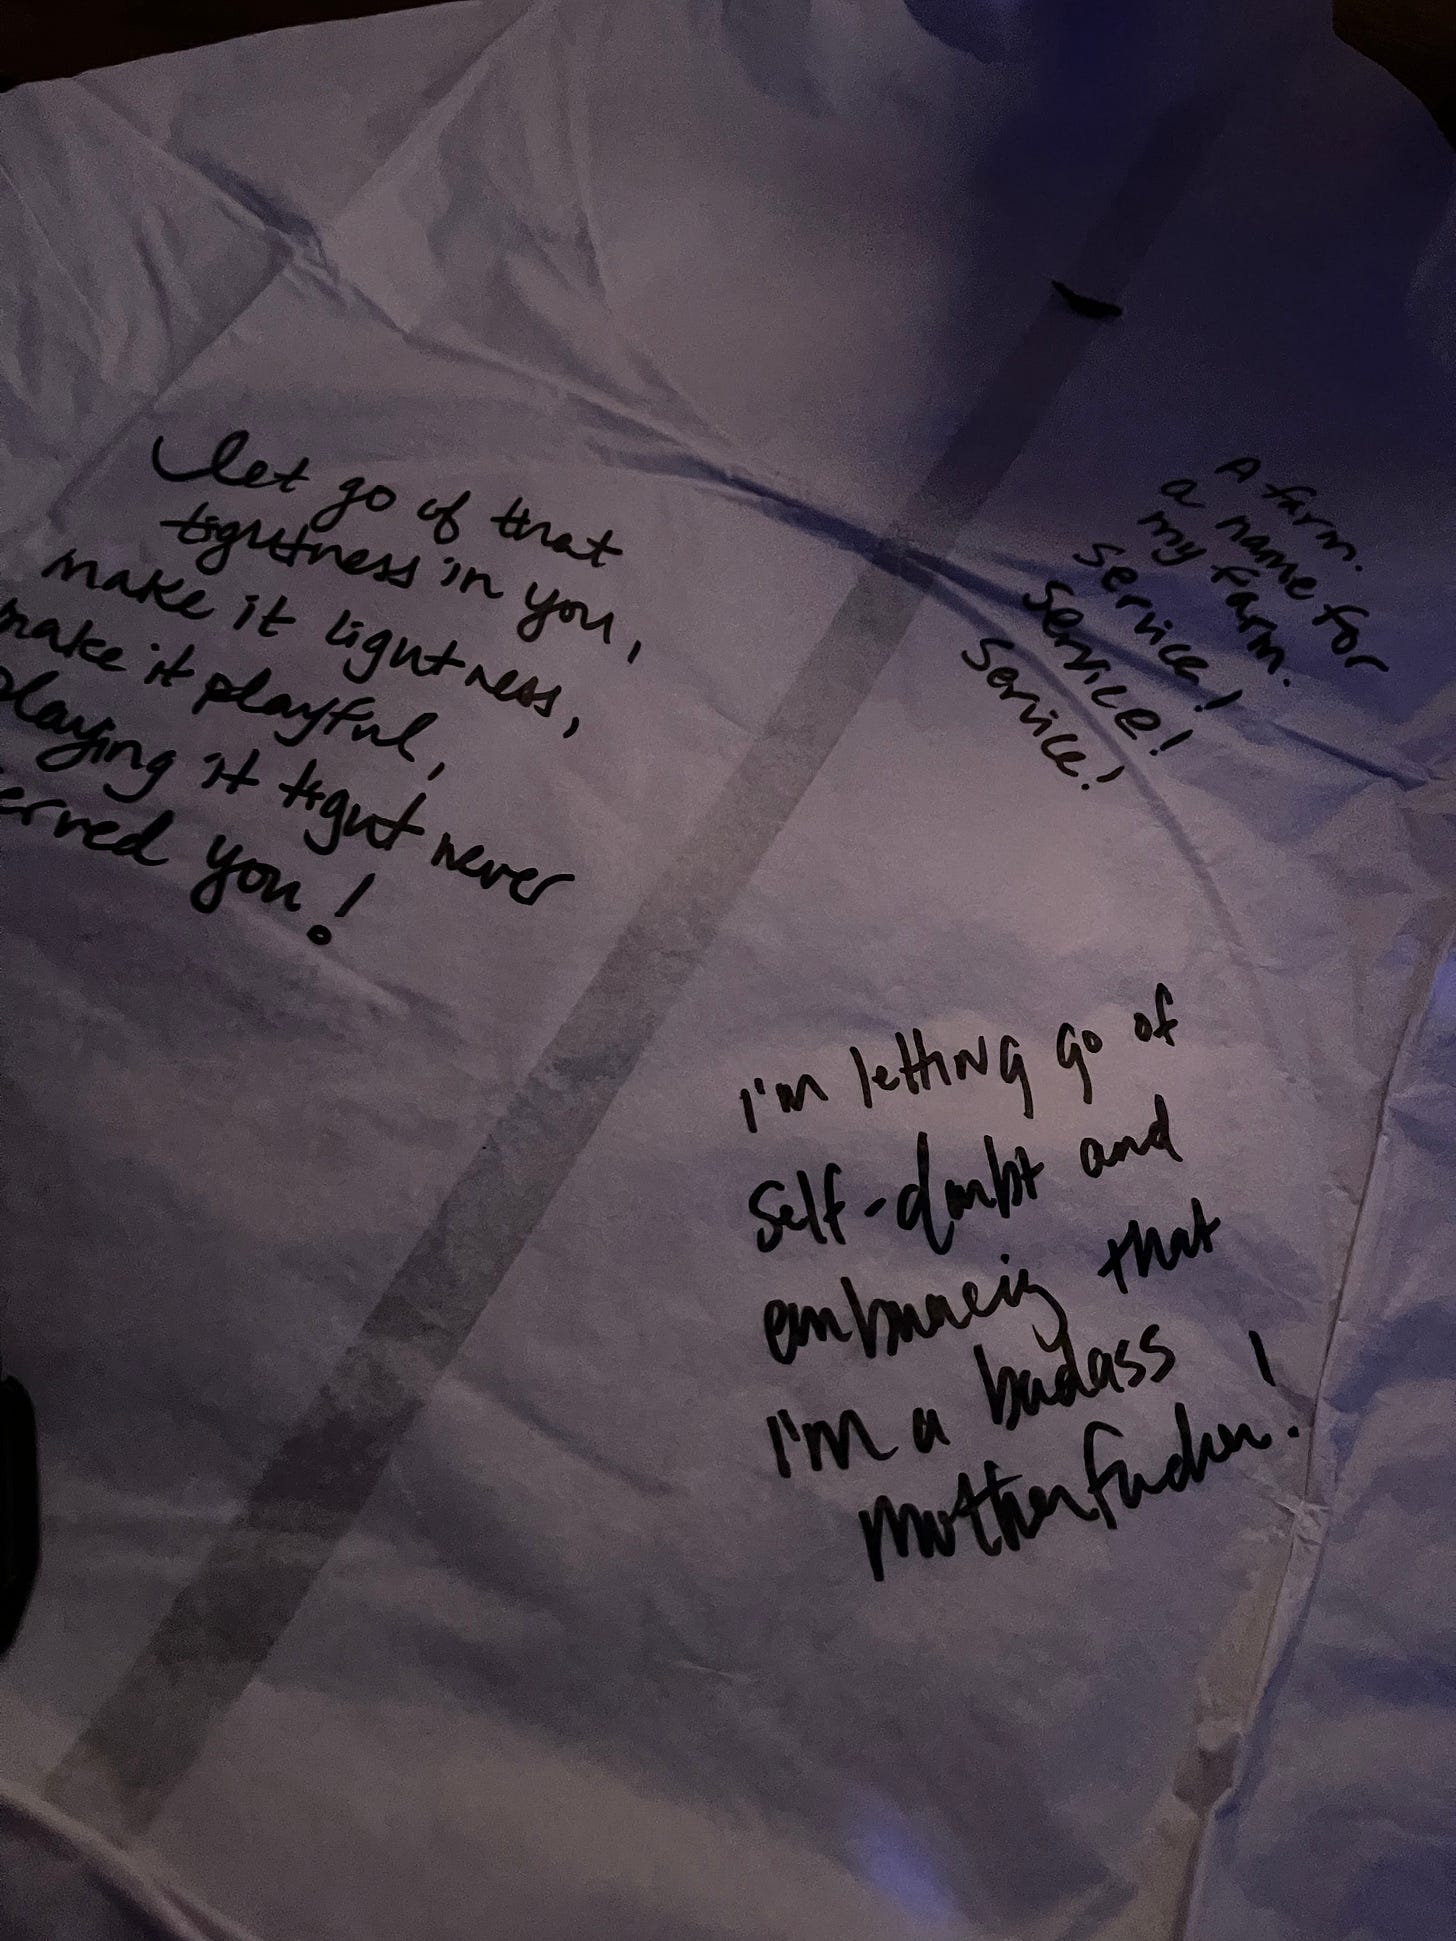 let go of that
tightness in you,
make it lightness,
make it playful,
playing it tight never
erved you!
A farm.
a name for
my farm.
Service!
Service!
Service!
I'm letting go of
Self-doubt and
embracing that
I'm a badass
motherfucker!